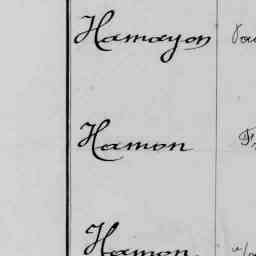 Hamayon
Hamon
Hamon